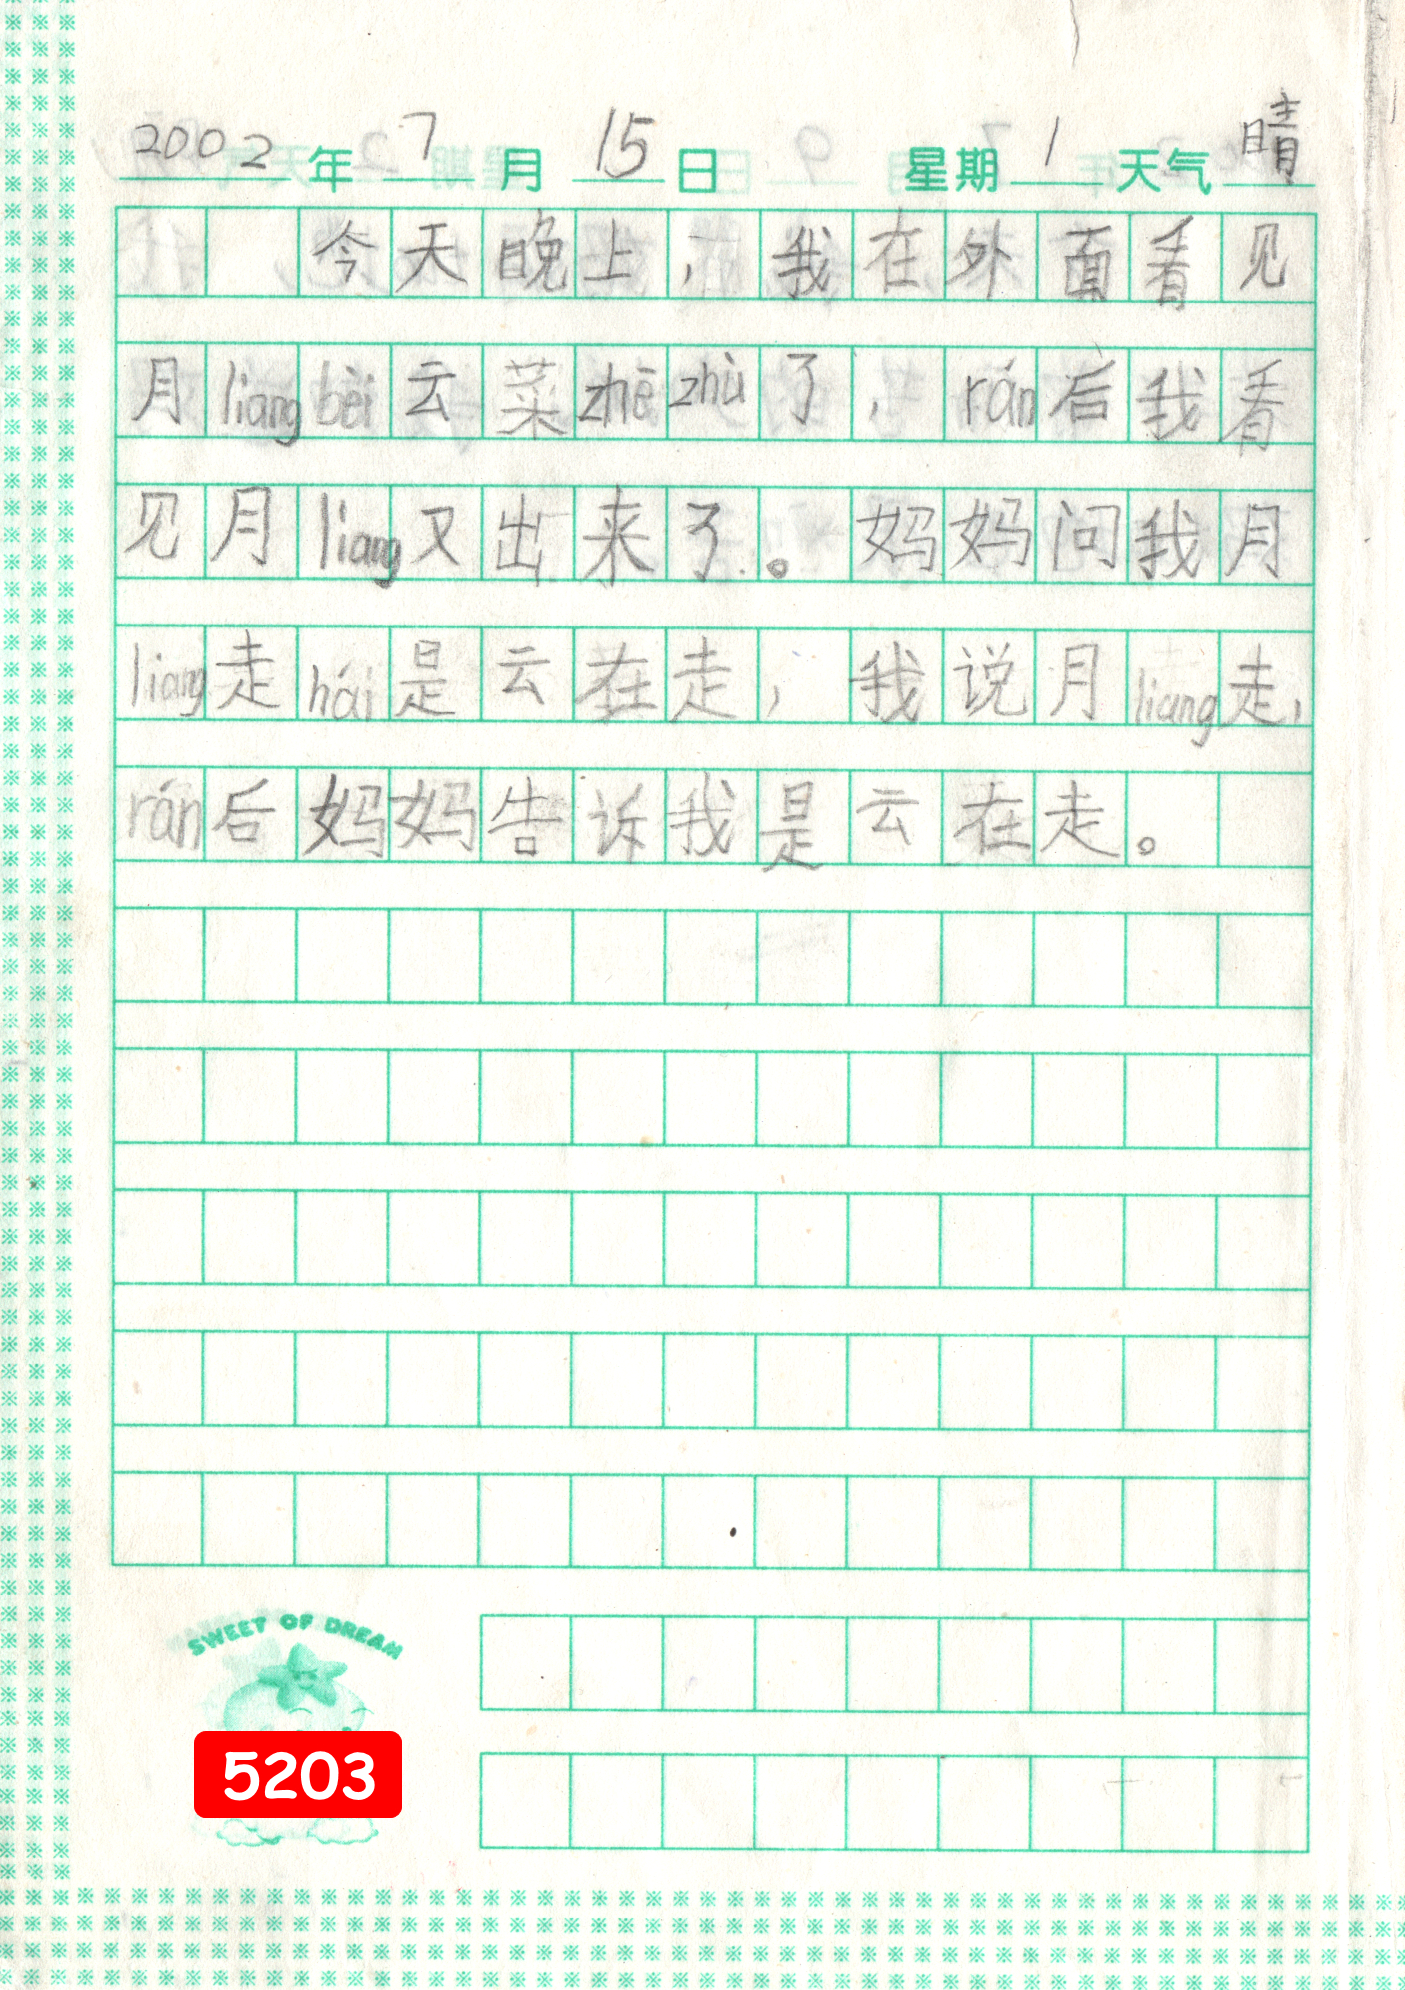 2002年7月15日 星期1天气晴
今天晚上，我在外面看见
月liang bèi云菜zhē zhù了，rán后我看
见月liang又出来了。妈妈问我月
liang走hái是云在走，我说月liang走，
rán后妈妈告诉我是云在走。
SWEET OF DREAM
5203